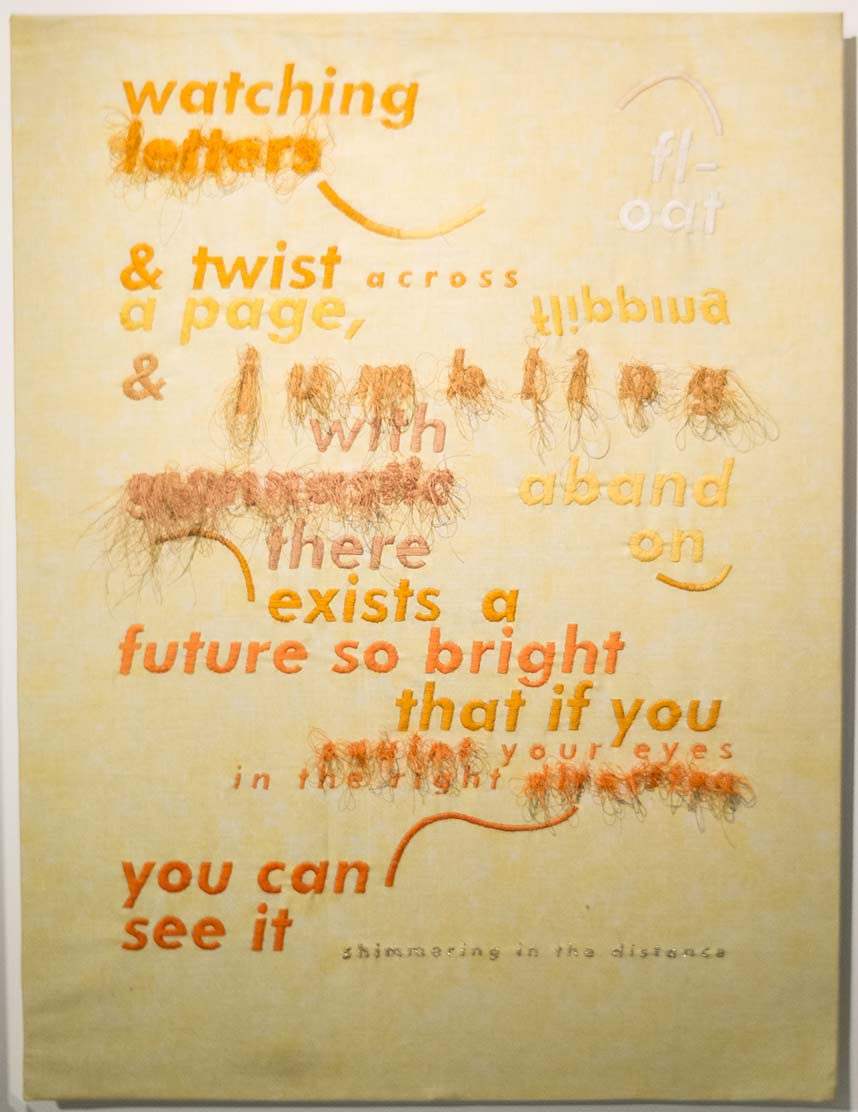 watching
letters
fl-
oat
& twist across
a page,
flipping
&
with
aband
on
there
exists a
future so bright
that if you
squint your eyes
in the right direction
you can
see it
shimmering in the distance